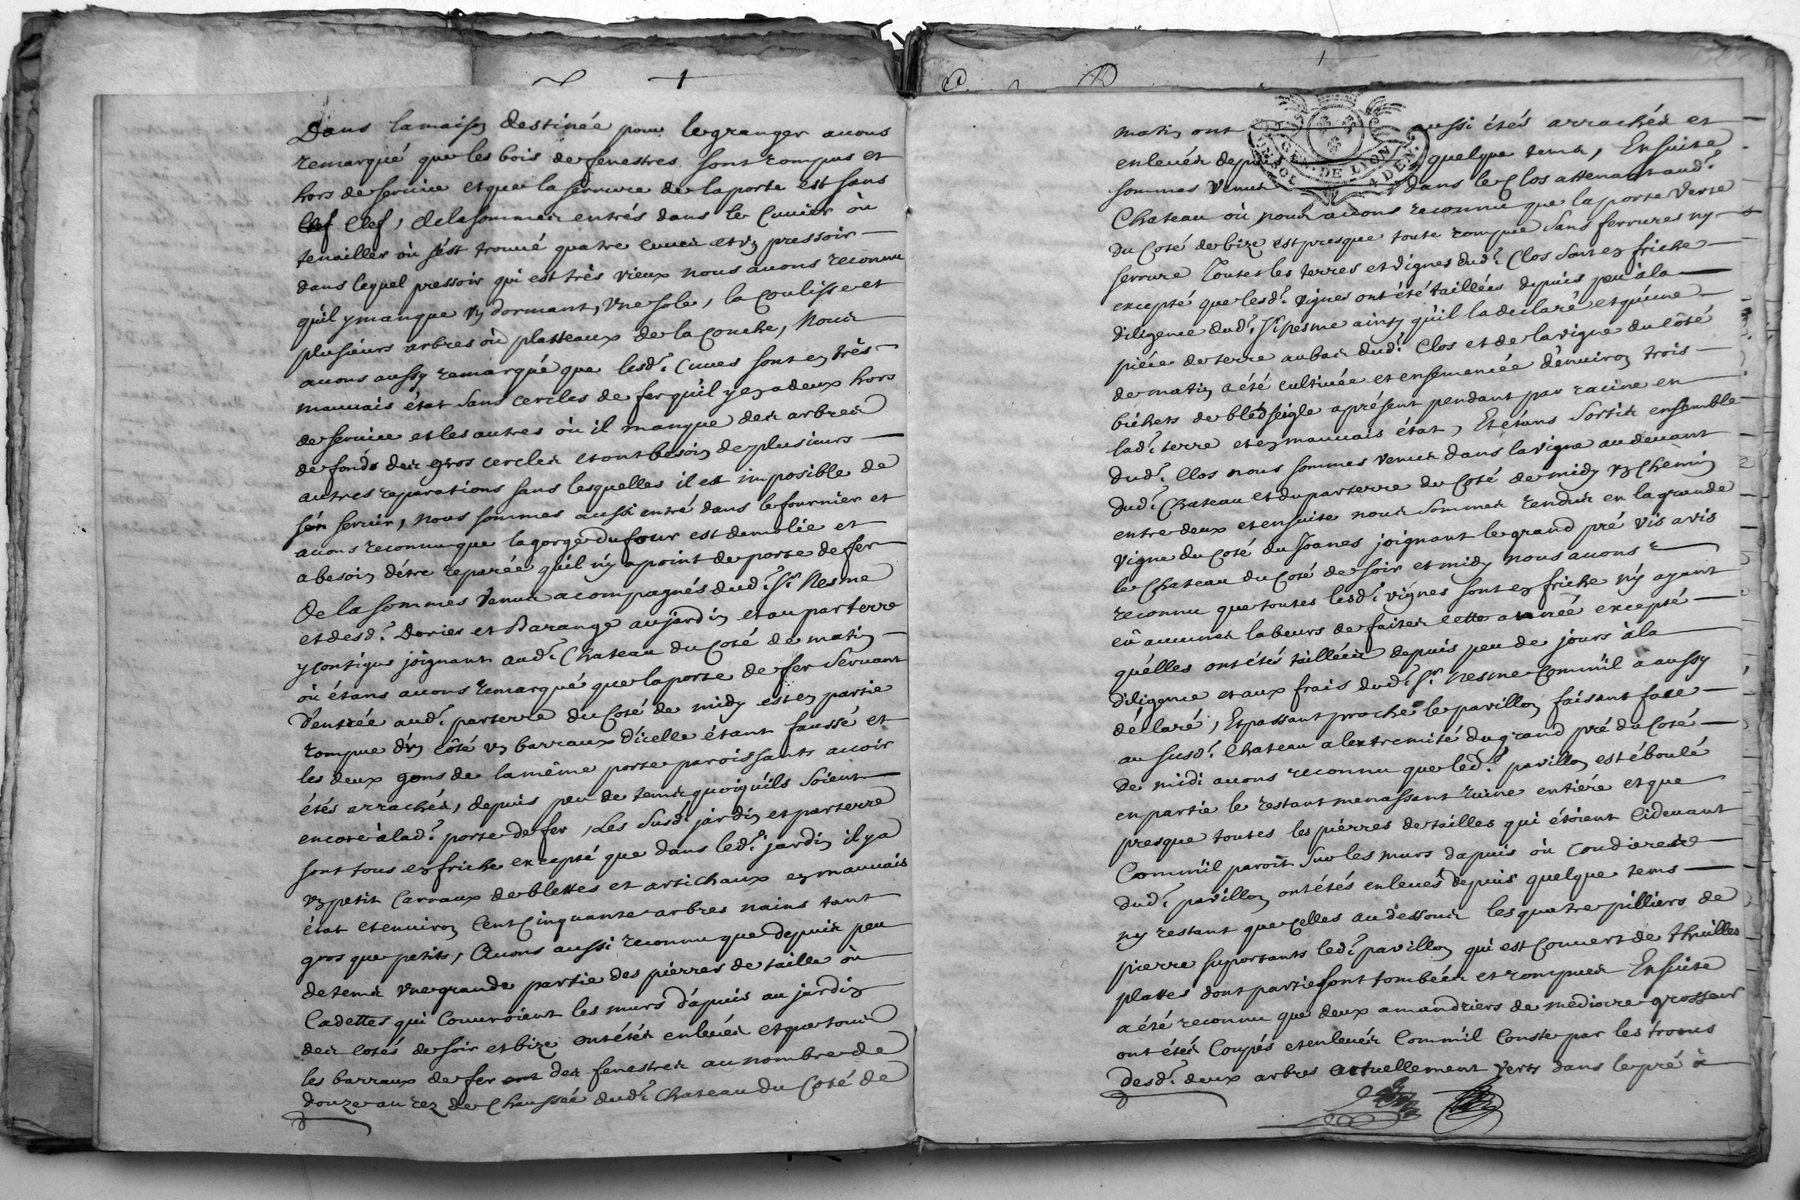 Dans lamaison destinée pour legranger auons
remarqué que les bois de fenestres sont rompus et
hors de seruice et que la serrure de laporte est sans
Clef, dela sommes entrés dans le Cuuier ou
tenailles où s'ést trouué quatre cuues et un pressoir
dans lequel pressoir qui est très vieux nous auons reconnu
quil ymanque un dormant, une sole, la Coulisse et
plusieurs arbres où platteaux de la Conche, Nous
auons aussy remarqué que lesd.s Cuues sont en très
mauuais état sans cercles de fer quil yen a deux hors
deseruice et les autres où il manque des arbres
de fonds des gros cercles et ont besoin de plusieurs
autres reparations sans lesquelles il est imposible de
s'en seruir, nous sommes aussi entré dans le fournier et
auons reconnu que lagorge du four est demolie et
abesoin d'étre reparée qu'il n'y a point de porte de fer
De la sommes Venus acompagnés dud.t S.r Nesme
et desd.s Dories et Barange au jardin et au parterre
y contigus joignant aud.t Chateau du Coté de matin
où étans auons remarqué que laporte de fer seruant
d'entrée aud.t parterre du Coté de midy est en partie
rompue d'un côté un barraux d'icelle étant faussé et
les deux gons de lamême porte paroissants auoir
étés arrachés, depuis peu de tems quoiqu'ils soient
encore à lad.e porte de fer, Les susd.s jardin et parterre
sont tous en friche excepté que dans led.t jardin il y a
un petit Carraux de blettes et artichaux en mauuais
état et enuiron Cent Cinquante arbres nains tant
gros que petits, Auons aussi reconnu que depuis peu
de tems une grande partie des pierres de taille où
Cadettes qui Couuroient les murs d'apuis au jardin
des cotés de soir et bize ont étés enleués et que tous
les barraux de fer des fenestres au nombre de
douze au rez de Chaussée dud.t Chateau du Coté de
matin ont aussi étés arrachés et
enleués depuis quelque tems, Ensuite
sommes Venus dans le Clos attenant aud.t
Chateau où nous auons reconnu que laporte verte
du Coté de bize est presque toute rompue sans ferrures ny
serrure Toutes les terres et vignes dud.t Clos sont en friche
excepté que lesd.s vignes ont été taillées depuis peu àla
diligence dud.t S.r Nesme ainsy qu'il la declaré et qu'une
piéce de terre au bas dud.t Clos et de la vigne du côté
de matin a été cultiuée et ensemencée d'enuiron trois
bichets de bled seigle aprésent pendant par racine en
lad.e terre et en mauuais état, Et étans sortis ensemble
dud.t Clos nous sommes venus dans la vigne au deuant
dud.t Chateau et du parterre du Coté de midy un Chemin
entre deux et ensuite nous sommes rendus en la grande
vigne du Coté du joignant le grand pré vis avis
le Chateau du Coté de soir et midy nous auons
reconnu que toutes lesd.s vignes sont en friche n'y ayant
eû aucunes labeurs de faites cette année excepté
qu'elles ont étés taillées depuis peu de jours àla
diligence et aux frais dud.t S.r Nesme Comm'il a aussy
déclaré, Et passant proche le pavillon faisant face
au susd.t Chateau à l'extremité du grand pré du Coté
de midi auons reconnu que led.t pavillon est éboulé
en partie le restant menassant ruine entiére et que
presque toutes les piérres de tailles qui étoient cideuant
Comm'il paroît sur les murs dapuis où
dud.t pavillon ont étés enleués depuis quelque tems
ny restant que celles audessous les quatre pilliers de
pierre suportants led.t pavillon qui est Couuert de thuilles
plattes dont partie sont tombées et rompues Ensuite
a été reconnu que deux amandriers de mediocre grosseur
ont étés Coupés et enleués Comm'il Conste par les troncs
desd.s deux arbres actuellement verts dans le pré à